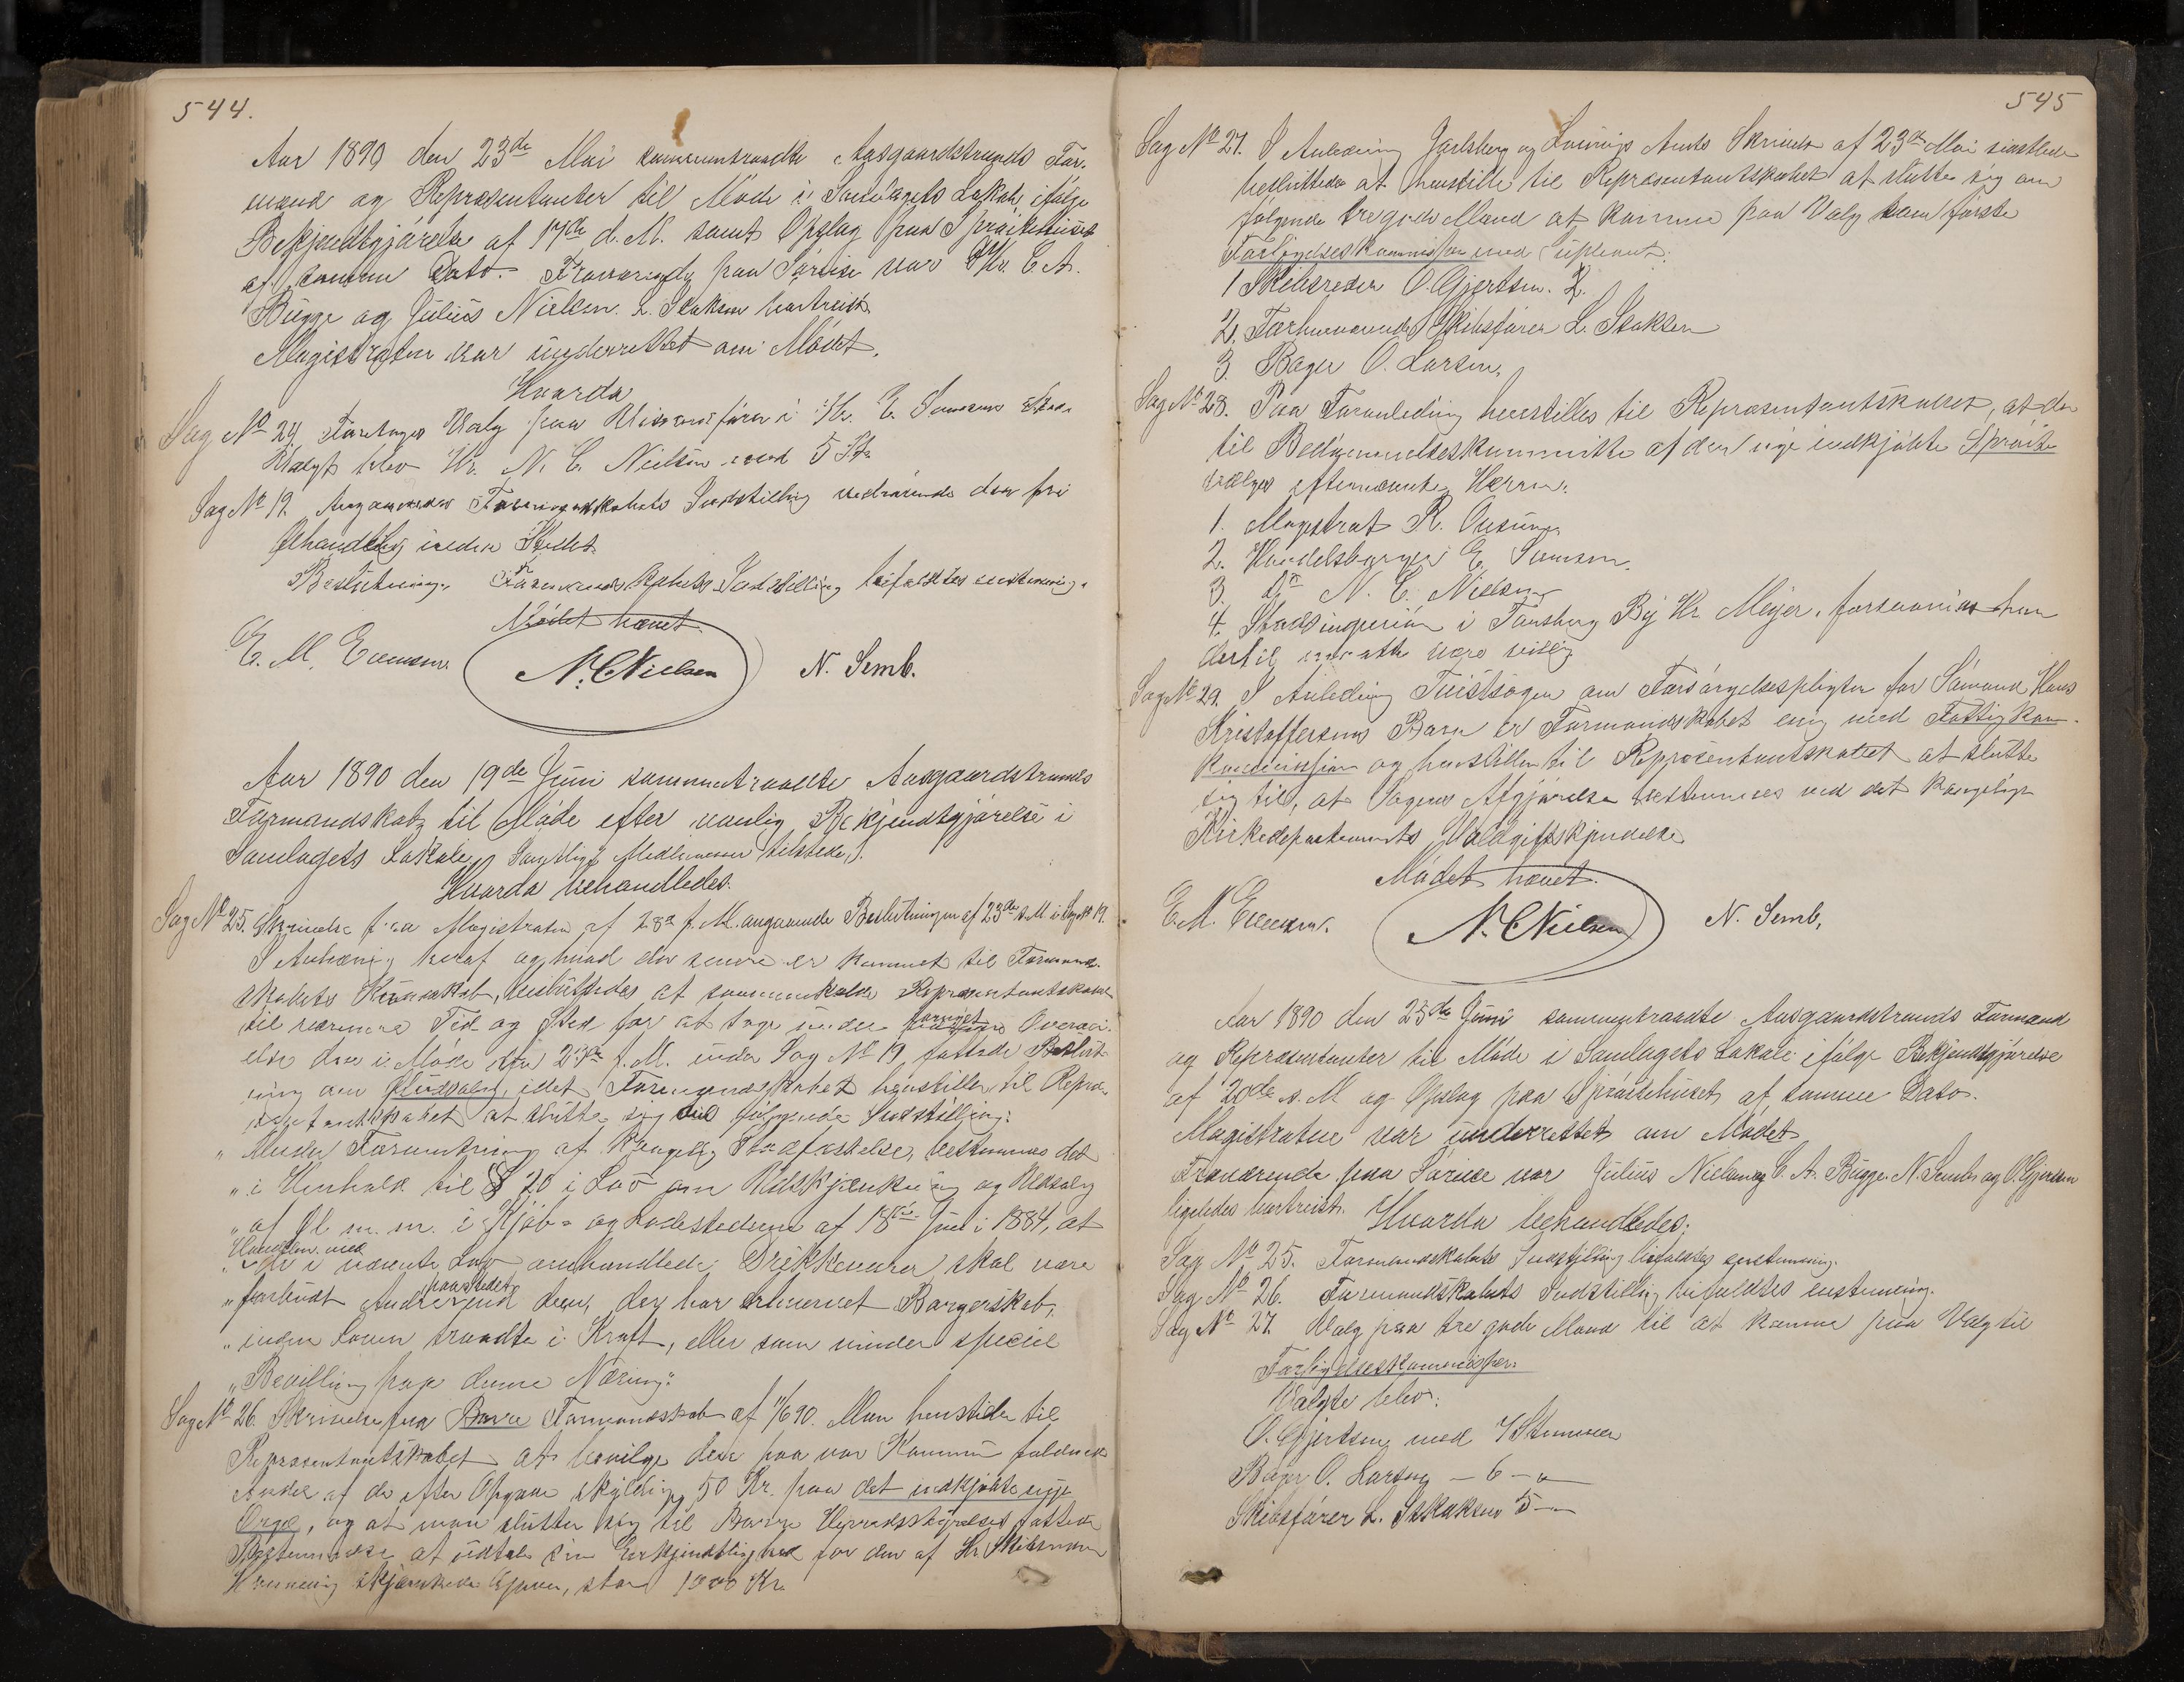 544.
Aar 1890 den 23de Mai sammentraadte Aasgaardstrands For-
mænd og Repræsentanter til Möde i Samlagets Lokale, ifölge
Bekjendtgjörelse af 17de d. M. samt Opslag paa Spröitehuset
af samme Dato. Fraværende paa Söreise var Hr. C. A.
Bügge og Julius Nielsen. L. Isaksen bortreist.
Magistraten var underrettet om Mödet.
Hvorda
Sag No 24. Foretoges Valg paa
Valgt blev Hr. N. C. Nielsen med 5 St.
Sag No 19. Angaaende Formandskabets Indstilling vedrörende den fri
Ölhandel inden Stedet.
Beslutning. Formandskabets Indstilling bifaldtes enstemmig.
Mödet hævet.
E. M. Evensen. N. C. Nielsen N. Semb.
Aar 1890 den 19de Juni sammentraadte Aasgaardstrands
Formandskab til Möde efter vanlig Bekjendtgjörelse i
Samlagets Lokale, Samtlige Medlemmer tilstede.
Hvorda behandledes:
Sag No 25. Skrivelse fra Magistraten af 28de f. M. angaaende Beslutningen af 23de s. M. i Sag No 19.
I Anledning heraf og hvad der senere er kommet til Formand-
skabets Kundskab, besluttedes at sammenkalde Repræsentantskabet
til nærmere Tid og Sted for at tage under fornyet Overvei-
else den i Möde den 23de f. M. under Sag No 19 fattede Beslut-
ning om Öludsalg, idet Formandskabet henstiller til Repræ-
sentantskabet at slutte sig til fölgende Indstilling:
"Under Forventning af Kongelig Stadfæstelse, bestemmes det
"i Henhold til § 20 i Lov om Udskjænkning og Udsalg
"af Öl m. m. i Kjöb- og Ladestederne af 18de Juni 1884, at
Handelen med
"de i nævnte Lov omhandlede Drikkevarer skal være
paa Stedet
"forbudt Andre end dem, der har erhvervet Borgerskab,
"inden Loven traadte i Kraft, eller som under speciel
"Bevilling paa denne Næring".
Sag No 26. Skrivelse fra Borre Formandskab af 11/6 90. Man henstiller til
Repræsentantskabet at bevilge den paa vor Kommune faldende
Andel af de efter Opgave skyldige 50 Kr. paa det indkjöbte nye
Orgel, og at man slutter sig til Borre Herredsstyrelses fattede
Bestemmelse at udtale sin Erkjendtlighed for den af Hr. Skibsreder
skjænkede Gave, stor 1000 Kr.
545
Sag No 27. I Anledning Jarlsberg og Laurvigs Amts Skrivelse af 23de Mai sidstleden
besluttedes at henstille til Repræsentantskabet at slutte sig om
fölgende tre gode Mænd at komme paa Valg som förste
Forligelseskommissær med Suppleant:
1 Skibsreder O. Gjertsen.
2. Forhenværende Skibsförer L. Isaksen
3. Bager O. Larsen.
Sag No 28. Paa Foranledning henstilles til Repræsentantskabet, at der
til Bedömmelseskommitte af den nye indkjöbte Spröite
vælges efternævnte Herrer:
1. Magistrat R.
2. Handelsborger E.
3. Do N. C. Nielsen
4. Stadsingeniör i Tönsberg By Hr. Meyer, forsaavidt han
dertil maatte være villig
Sag No 29. I Anledning Tvistsagen om Forsörgelsespligten for Sömand Hans
Kristoffersens Barn er Formandskabet enig med Fattigkom-
missionen og henstiller til Repræsentantskabet at slutte
sig til, at Sagens Afgjörelse bestemmes ved det kongelige
Kirkedepartements Voldgiftskjendelse.
Mödet hævet.
E. M. Evensen. N. C. Nielsen N. Semb,
Aar 1890 den 23de Juni sammentraadte Aasgaardstrands Formænd
og Repræsentanter til Möde i Samlagets Lokale ifölge Bekjendtgjörelse
af 20de d. M og Opslag paa Spröitehuset af samme Dato.
Magistraten var underrettet om Mödet
Fraværende paa Söreise var Julius Nielsen og C. A. Bügge. N. Semb og O. Gjertsen
ligeledes bortreist. Hvorda behandledes:
Sag No 25. Formandskabets Indstilling bifaldtes enstemmig.
Sag No 26. Formandskabets Indstilling bifaldtes enstemmig.
Sag No 27. Valg paa tre gode Mænd til at komme paa Valg til
Forligelseskommissær.
Valgte blev:
O. Gjertsen med 7 Stemmer
Bager O. Larsen – 6 – "
Skibsförer L. Isaksen 5 – "